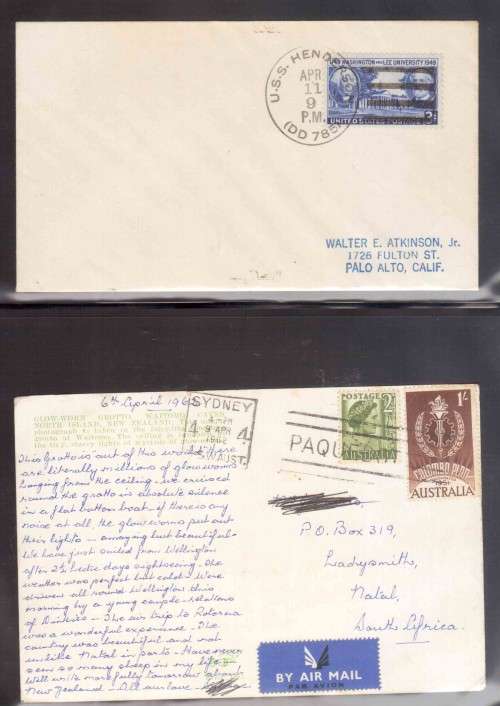 U.S.S. HENDERSON
APR
11
9
P.M.
(DD 785)
WASHINGTON AND LEE UNIVERSITY 1949
UNITED STATES POSTAGE 3¢
WALTER E. ATKINSON, Jr.
1726 FULTON ST.
PALO ALTO, CALIF.
6th April 1962
GLOW-WORM GROTTO, WAITOMO CAVES,
NORTH ISLAND, NEW ZEALAND:
SYDNEY
4 9 APR 4
1962
AUST.
PAQUEBOT
POSTAGE
2D
AUSTRALIA
1/-
COLOMBO PLAN
1951
AUSTRALIA
This Grotto is "out of this world" there
are literally millions of glow worms
hanging from the ceiling - we cruised
round the grotto in absolute silence
in a flat bottom boat - if there is any
noise at all, the glow worms put out
their lights - amazing but beautiful -
We have just sailed from Wellington
after 2½ hectic days sightseeing. The
weather was perfect but cold - Were
driven all round Wellington this
morning by a young couple - relations
of - The air trip to Rotorua
was a wonderful experience - The
country was beautiful and not
unlike Natal in parts - Have never
seen so many sheep in my life -
Will write more fully tomorrow about
New Zealand - All our love -
P.O. Box 319,
Ladysmith,
Natal,
South Africa
BY AIR MAIL
PAR AVION